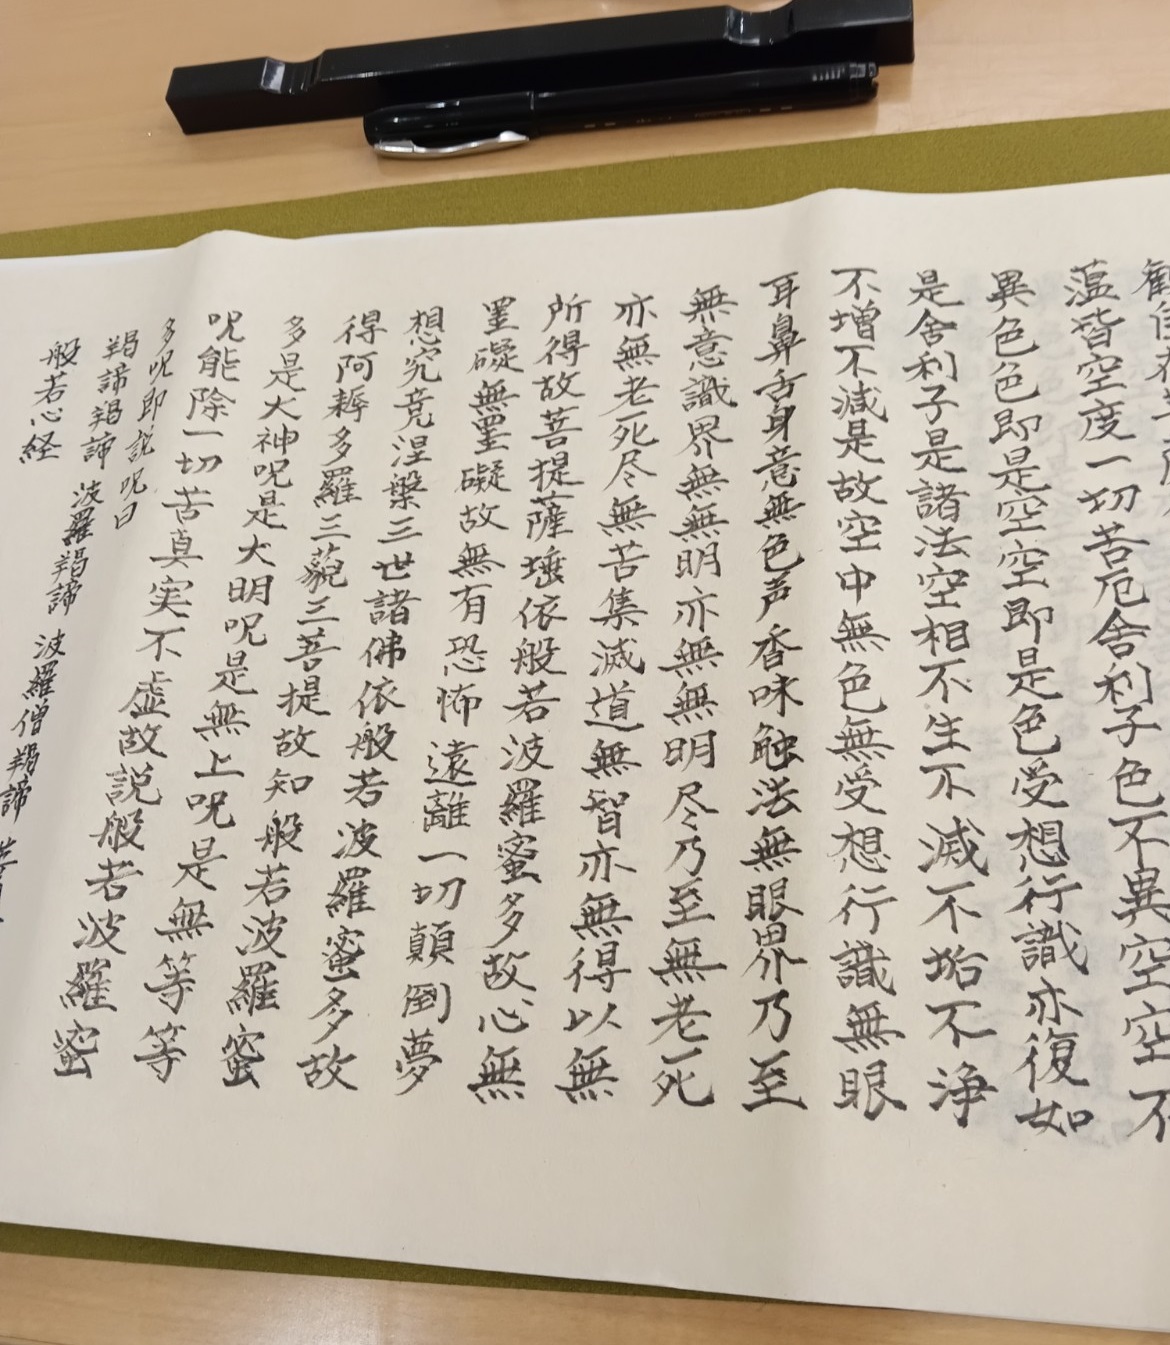 観自在菩
蘊皆空度一切苦厄舎利子色不異空空不
異色色即是空空即是色受想行識亦復如
是舎利子是諸法空相不生不滅不垢不浄
不増不減是故空中無色無受想行識無眼
耳鼻舌身意無色声香味触法無眼界乃至
無意識界無無明亦無無明尽乃至無老死
亦無老死尽無苦集滅道無智亦無得以無
所得故菩提薩埵依般若波羅蜜多故心無
罣礙無罣礙故無有恐怖遠離一切顛倒夢
想究竟涅槃三世諸佛依般若波羅蜜多故
得阿耨多羅三藐三菩提故知般若波羅蜜
多是大神呪是大明呪是無上呪是無等等
呪能除一切苦真実不虚故説般若波羅蜜
多呪即説呪曰
羯諦羯諦 波羅羯諦 波羅僧羯諦
般若心経